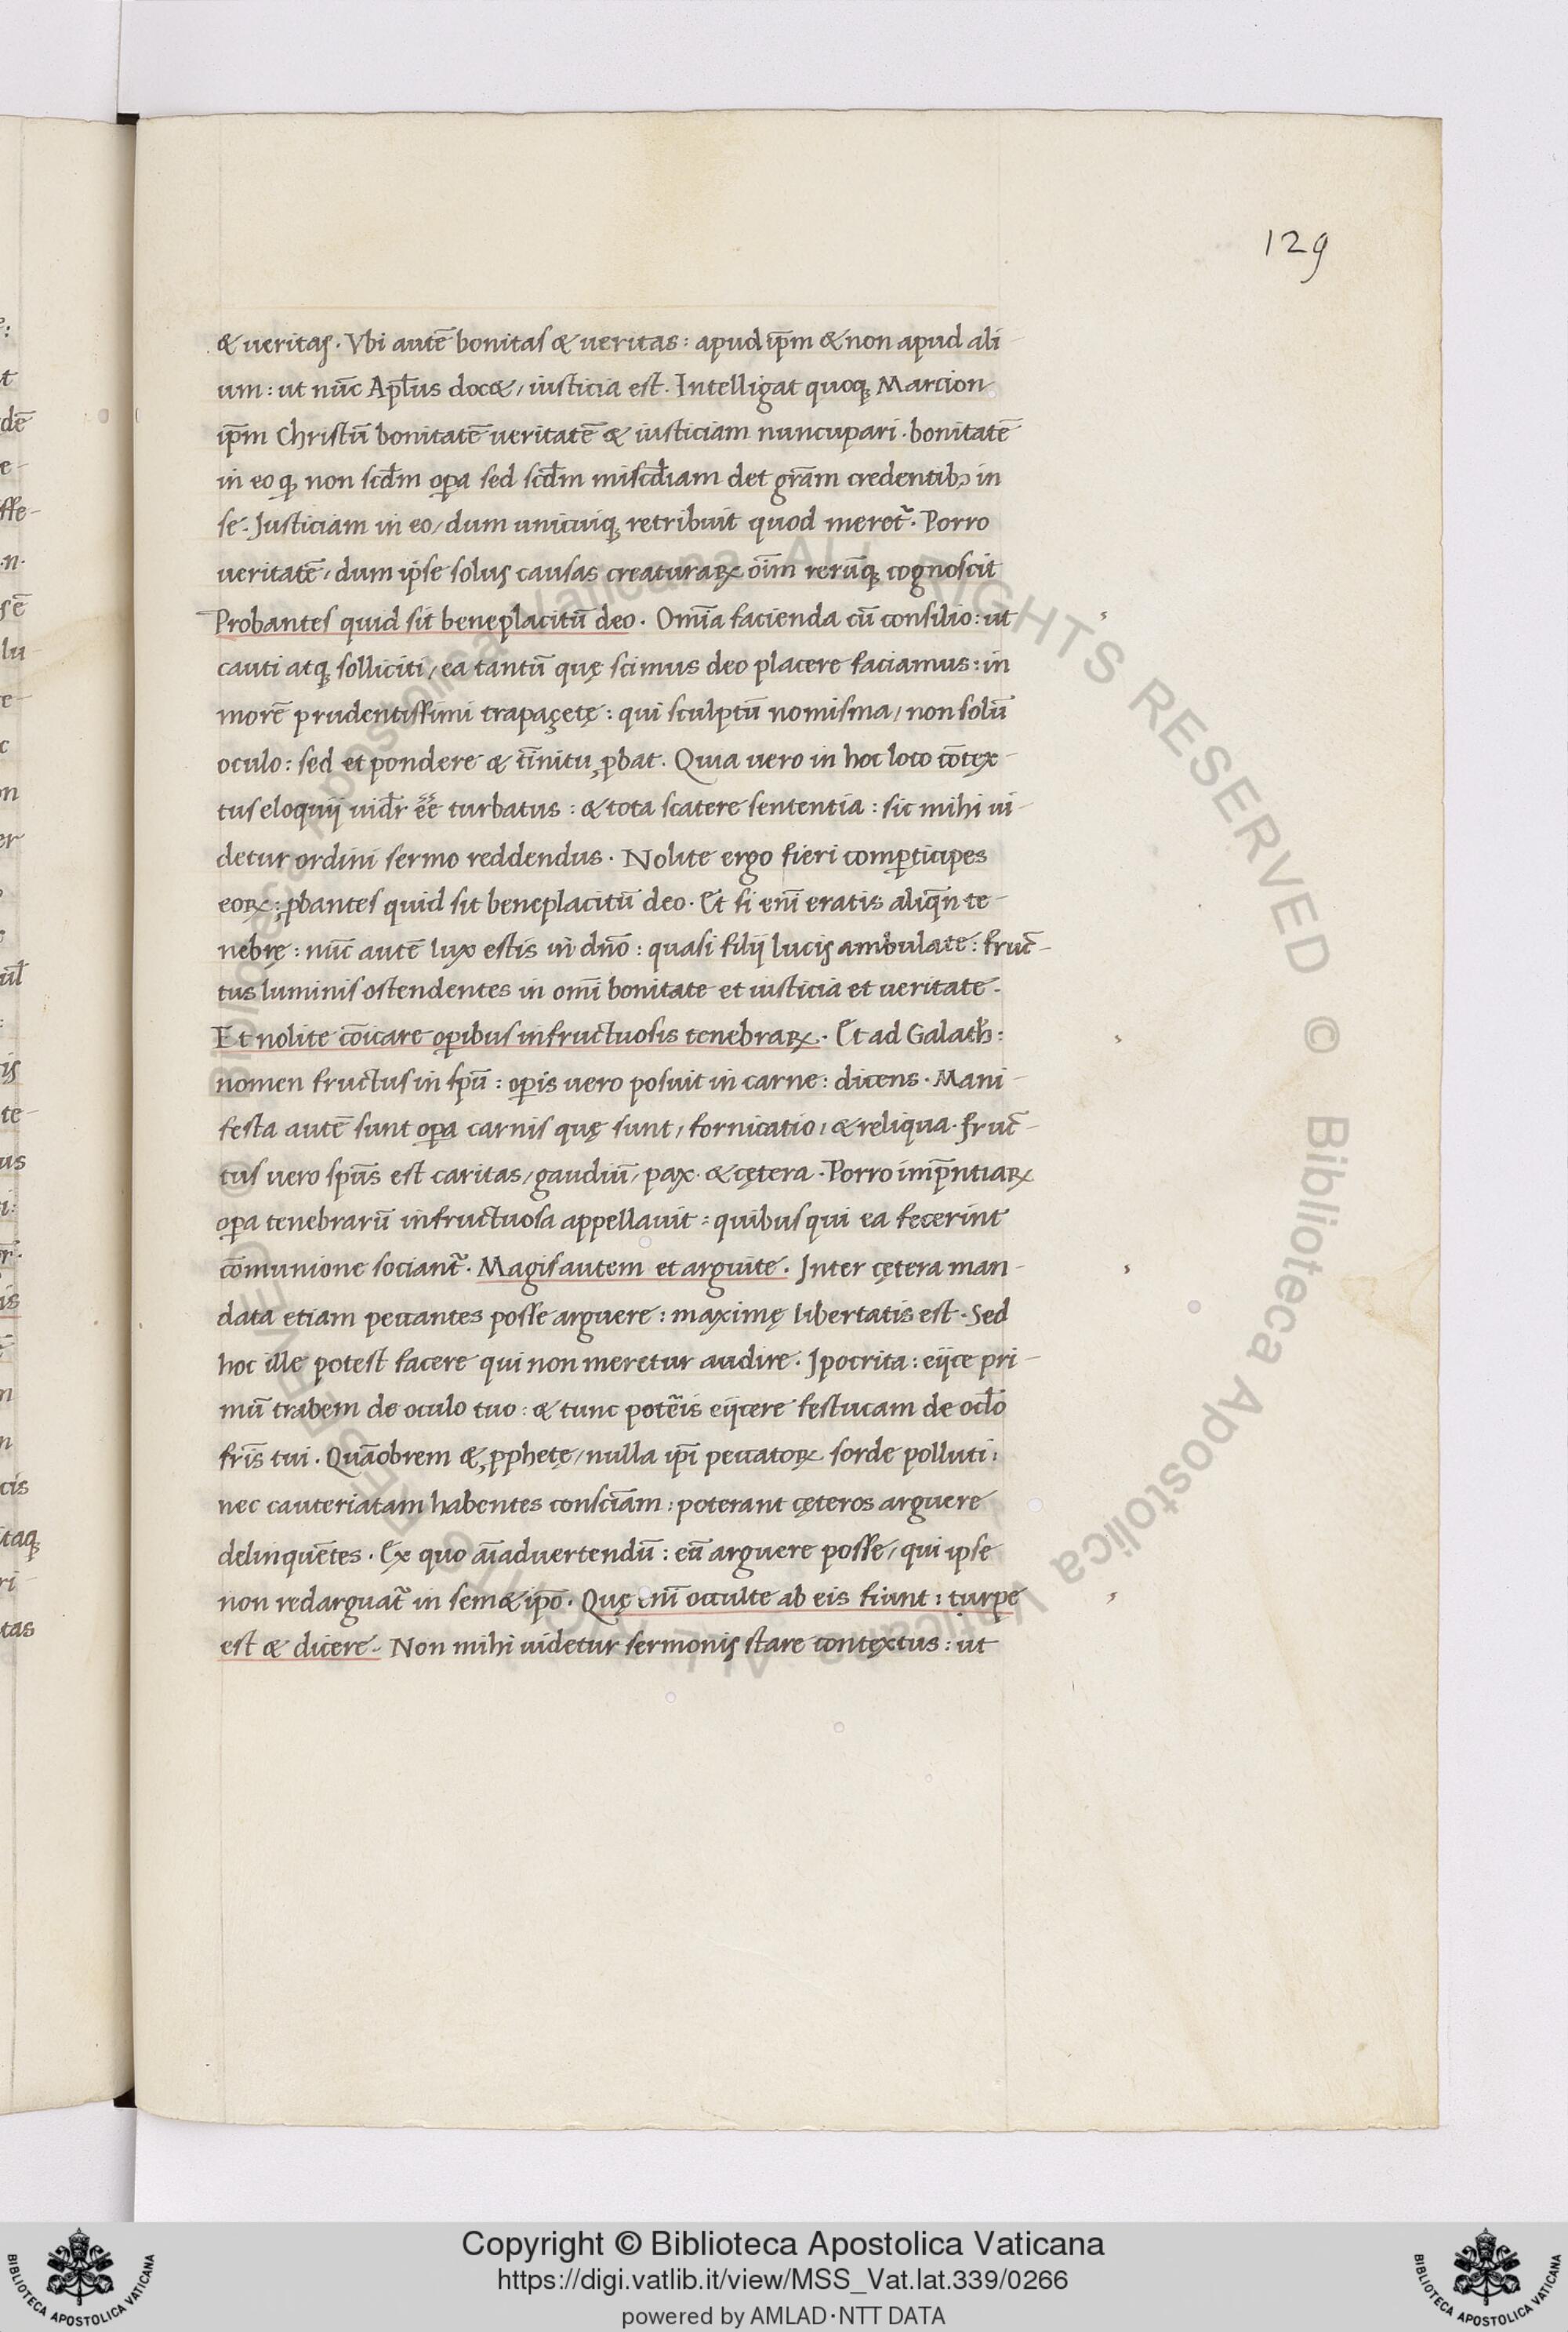 129
& ueritas. Vbi autē bonitas & ueritas: apud ip̄m & non apud ali-
um: ut nūc Ap̄lus doc&, iusticia est. Intelligat quoq; Marcion
ip̄m Christū bonitatē ueritatē & iusticiam nuncupari. bonitatē
in eo q; non scd̄m oꝑa sed scd̄m misc̄diam det gr̄am credentibꝫ in
se. Justiciam in eo, dum unicuiq; retribuit quod meret᷑. Porro
ueritatē, dum ipse solus causas creaturaꝝ oīm rerūq; cognoscit
Probantes quid sit beneplacitū deo. Omīa facienda cū consilio: ut
cauti atq; solliciti, ea tantū quę scimus deo placere faciamus: in
morē prudentissimi trapaçetę: qui sculptū nomisma, non solū
oculo: sed et pondere & tīnitu ꝓbat. Quia uero in hoc loco cōtex-
tus eloquij uid̄r ēē turbatus: & tota scatere sententia: sic mihi ui-
detur ordini sermo reddendus. Nolite ergo fieri comꝑticipes
eoꝝ: ꝓbantes quid sit beneplacitū deo. Et si enī eratis aliqn̄ te-
nebrę: nūc autē lux estis in dn̄o: quasi filij lucis ambulate: fruc-
tus luminis ostendentes in omī bonitate et iusticia et ueritate.
Et nolite cōicare oꝑibus infructuosis tenebraꝝ. Et ad Galath:
nomen fructus in spū: oꝑis uero posuit in carne: dicens. Mani-
festa autē sunt oꝑa carnis quę sunt, fornicatio, & reliqua. fruc-
tus uero spūs est caritas, gaudiū, pax. & cętera. Porro imp̄ntiaꝝ
oꝑa tenebrarū infructuosa appellauit: quibus qui ea fecerint
cōmunione sociant᷑. Magis autem et arguite. Inter cętera man-
data etiam peccantes posse arguere: maximę libertatis est. Sed
hoc ille potest facere qui non meretur audire. Ipocrita: eijce pri-
mū trabem de oculo tuo: & tunc potēis eijcere festucam de ocl̄o
fr̄is tui. Quāobrem & ꝓphetę, nulla ip̄i peccatoꝝ sorde polluti:
nec cauteriatam habentes consciam̄: poterant cęteros arguere
delinquētes. Ex quo aīaduertendū: eū arguere posse, qui ipse
non redarguat᷑ in sem&ip̄o. Quę enī occulte ab eis fiunt: turpe
est & dicere. Non mihi uidetur sermonis stare contextus: ut
Copyright © Biblioteca Apostolica Vaticana
https://digi.vatlib.it/view/MSS_Vat.lat.339/0266
powered by AMLAD·NTT DATA